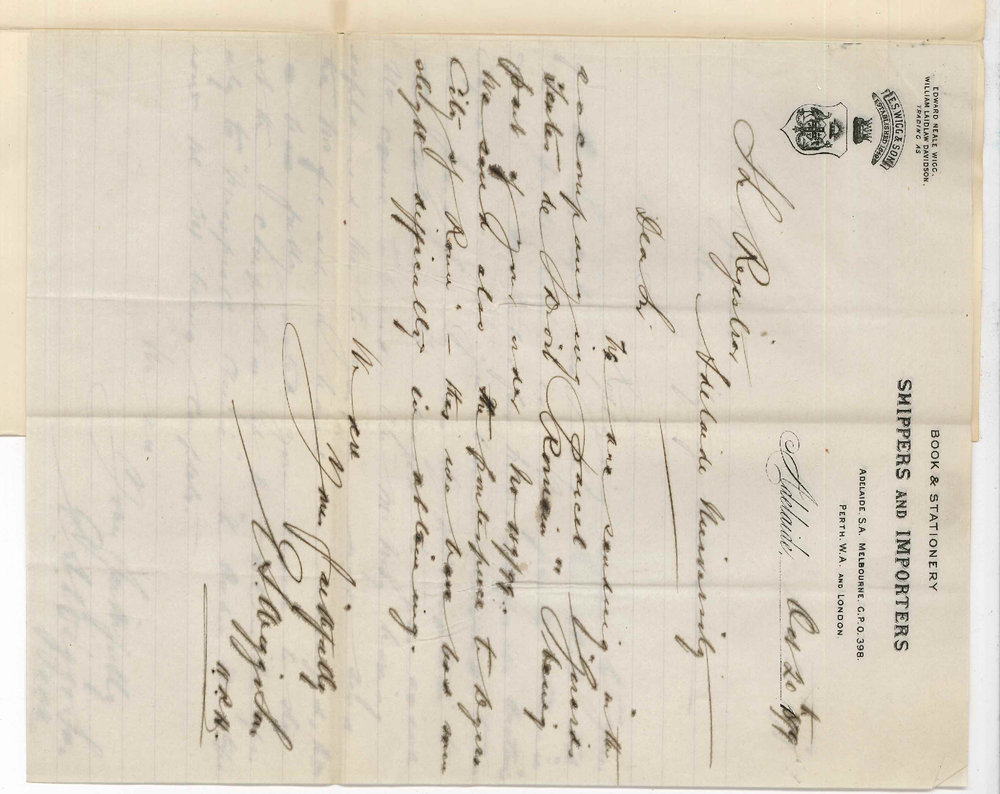 EDWARD NEALE WIGG.
WILLIAM LAIDLAW DAVIDSON.
TRADING AS
E.S. WIGG & SON
ESTABLISHED 1849
BOOK & STATIONERY
SHIPPERS AND IMPORTERS
ADELAIDE. S.A. MELBOURNE. G.P.O. 398.
PERTH. W.A. AND LONDON
Adelaide, 20th
The Registrar
Adelaide University
Dear Sir
We are sending in the
accompanying parcel
de Droit Romain
part of your order No
We send also the to
City of Rome - this we have had some
difficulty in obtaining.
We are
Yours faithfully
E.S. Wigg & Son